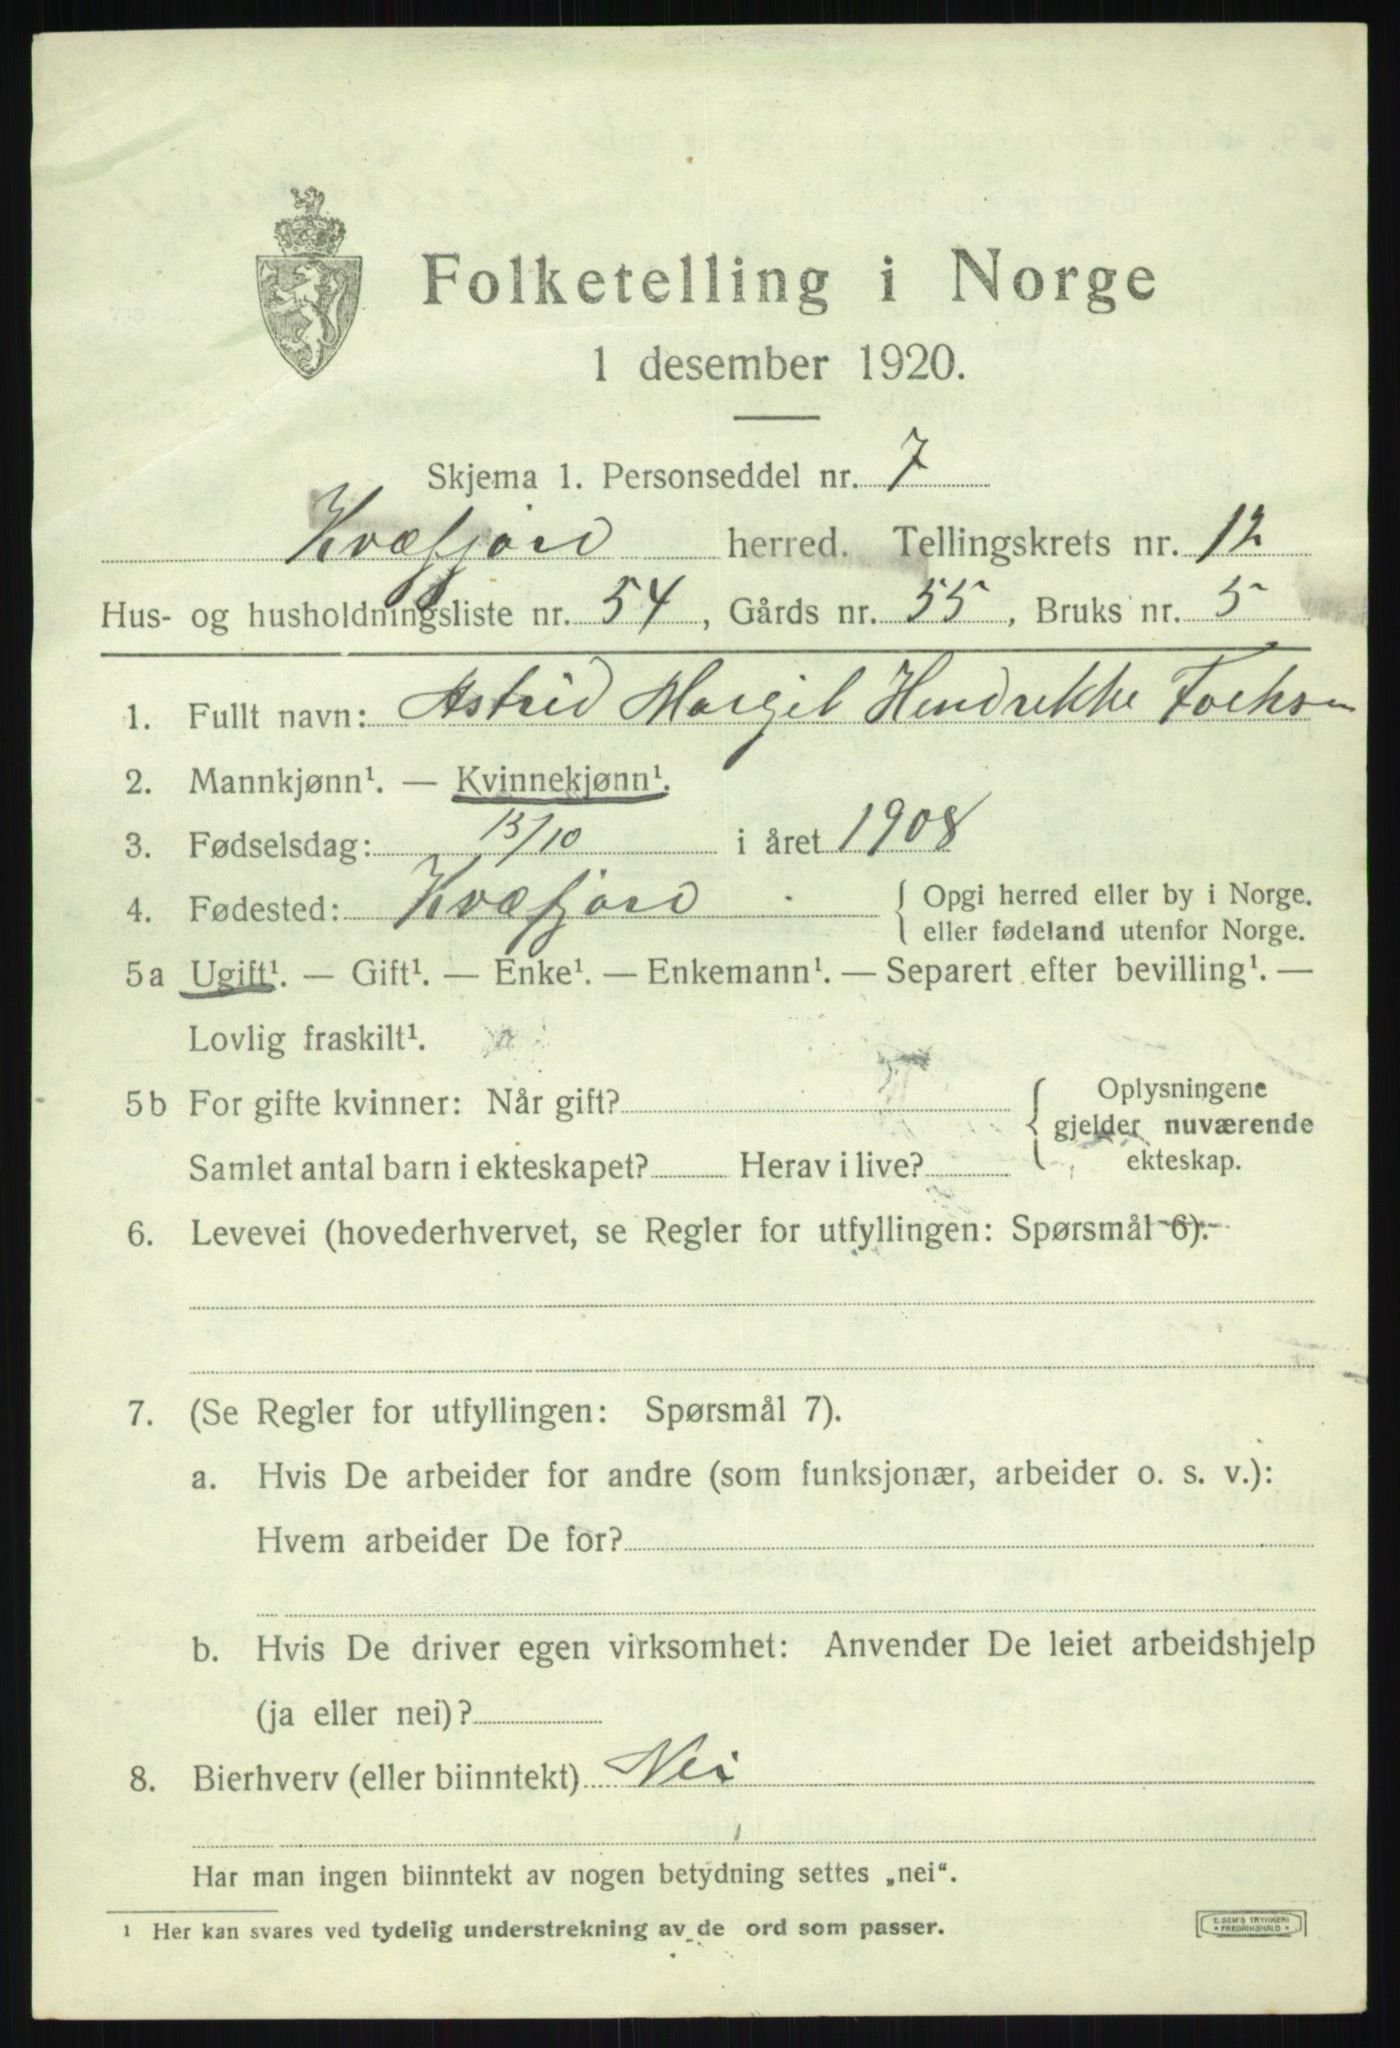 Folketelling i Norge
1 desember 1920.
Skjema 1. Personseddel nr. 7
Kvæfjord herred. Tellingskrets nr. 12
Hus- og husholdningsliste nr. 54, Gårds nr. 55, Bruks nr. 5
1. Fullt navn: Astrid Margit Hendrikke
2. Mannkjønn¹. — Kvinnekjønn¹.
3. Fødselsdag: 13/10 i året 1908
4. Fødested: Kvæfjord { Opgi herred eller by i Norge.
eller fødeland utenfor Norge.
5a Ugift¹. — Gift¹. — Enke¹. — Enkemann¹. — Separert efter bevilling¹. —
Lovlig fraskilt¹.
5b For gifte kvinner: Når gift? { Oplysningene
gjelder nuværende
Samlet antal barn i ekteskapet? Herav i live? ekteskap.
6. Levevei (hovederhvervet, se Regler for utfyllingen: Spørsmål 6).
7. (Se Regler for utfyllingen: Spørsmål 7).
a. Hvis De arbeider for andre (som funksjonær, arbeider o. s. v.):
Hvem arbeider De for?
b. Hvis De driver egen virksomhet: Anvender De leiet arbeidshjelp
(ja eller nei)?
8. Bierhverv (eller biinntekt) Nei
Har man ingen biinntekt av nogen betydning settes „nei“.
¹ Her kan svares ved tydelig understrekning av de ord som passer.
E. SEM'S TRYKKERI
* FREDRIKSHALD *